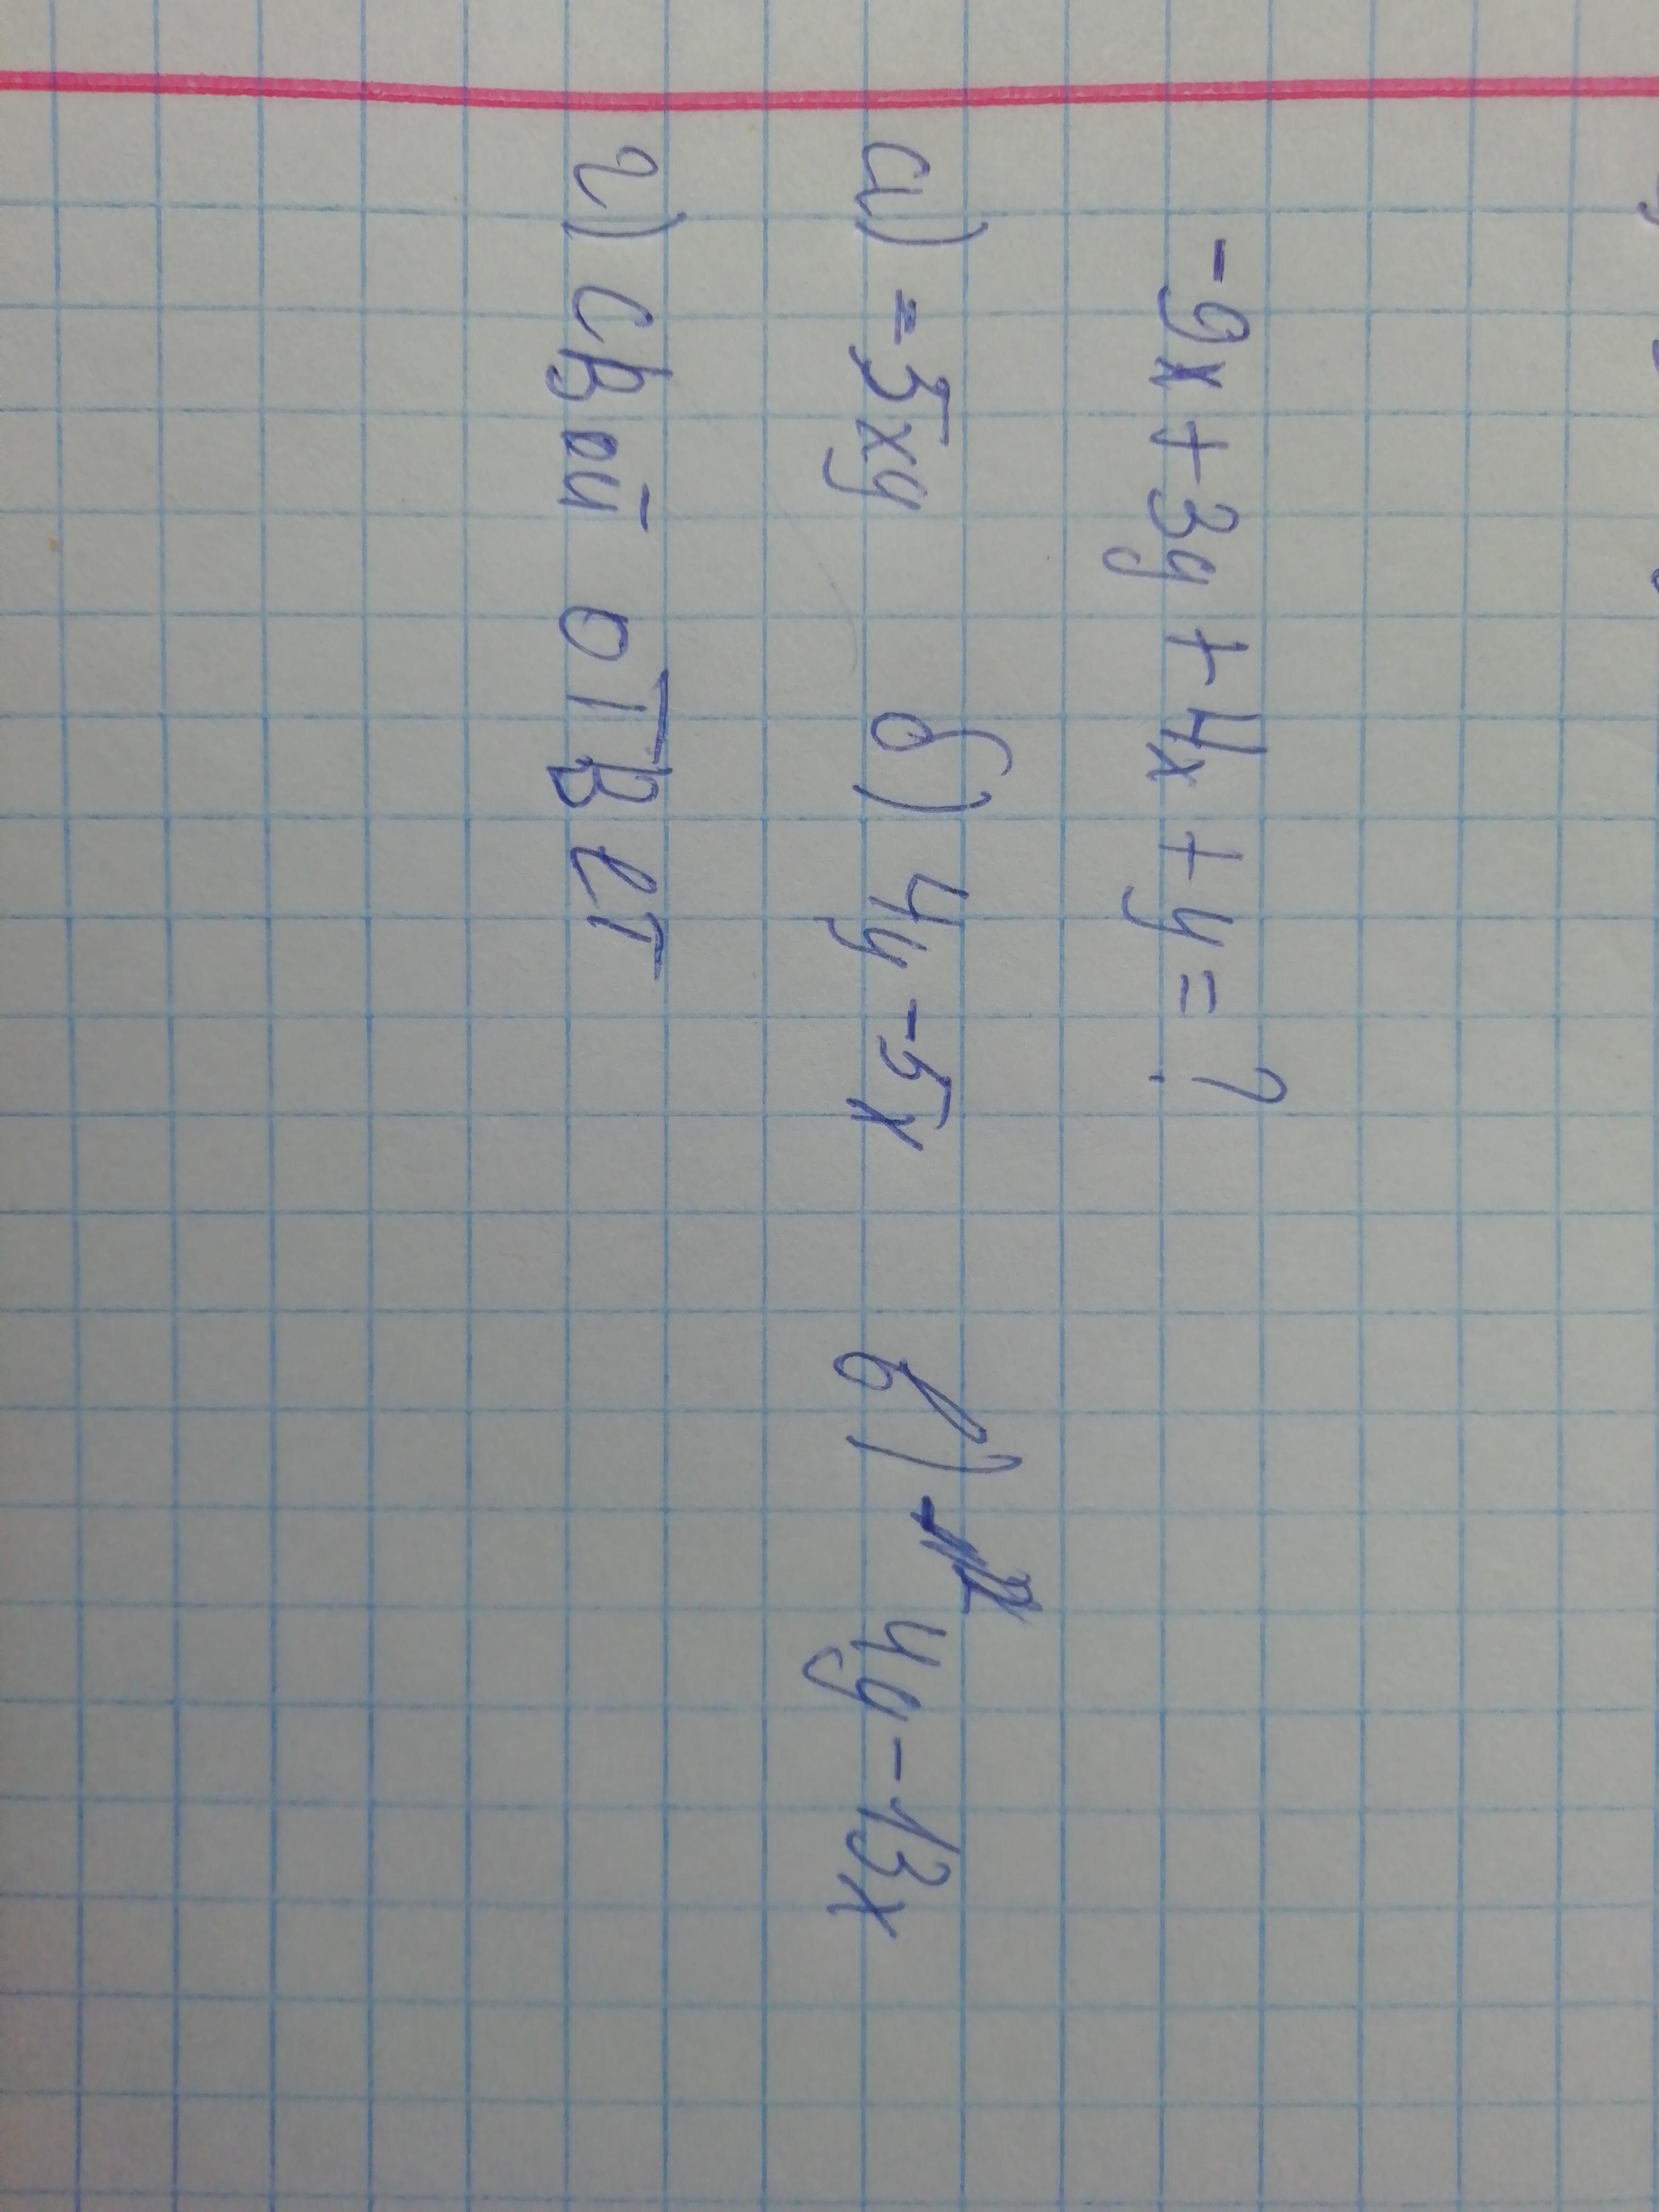 -9x+3y+4x+y=?
а) =5xy б) 4y-5x в) 4y-13x
г) свой ответ